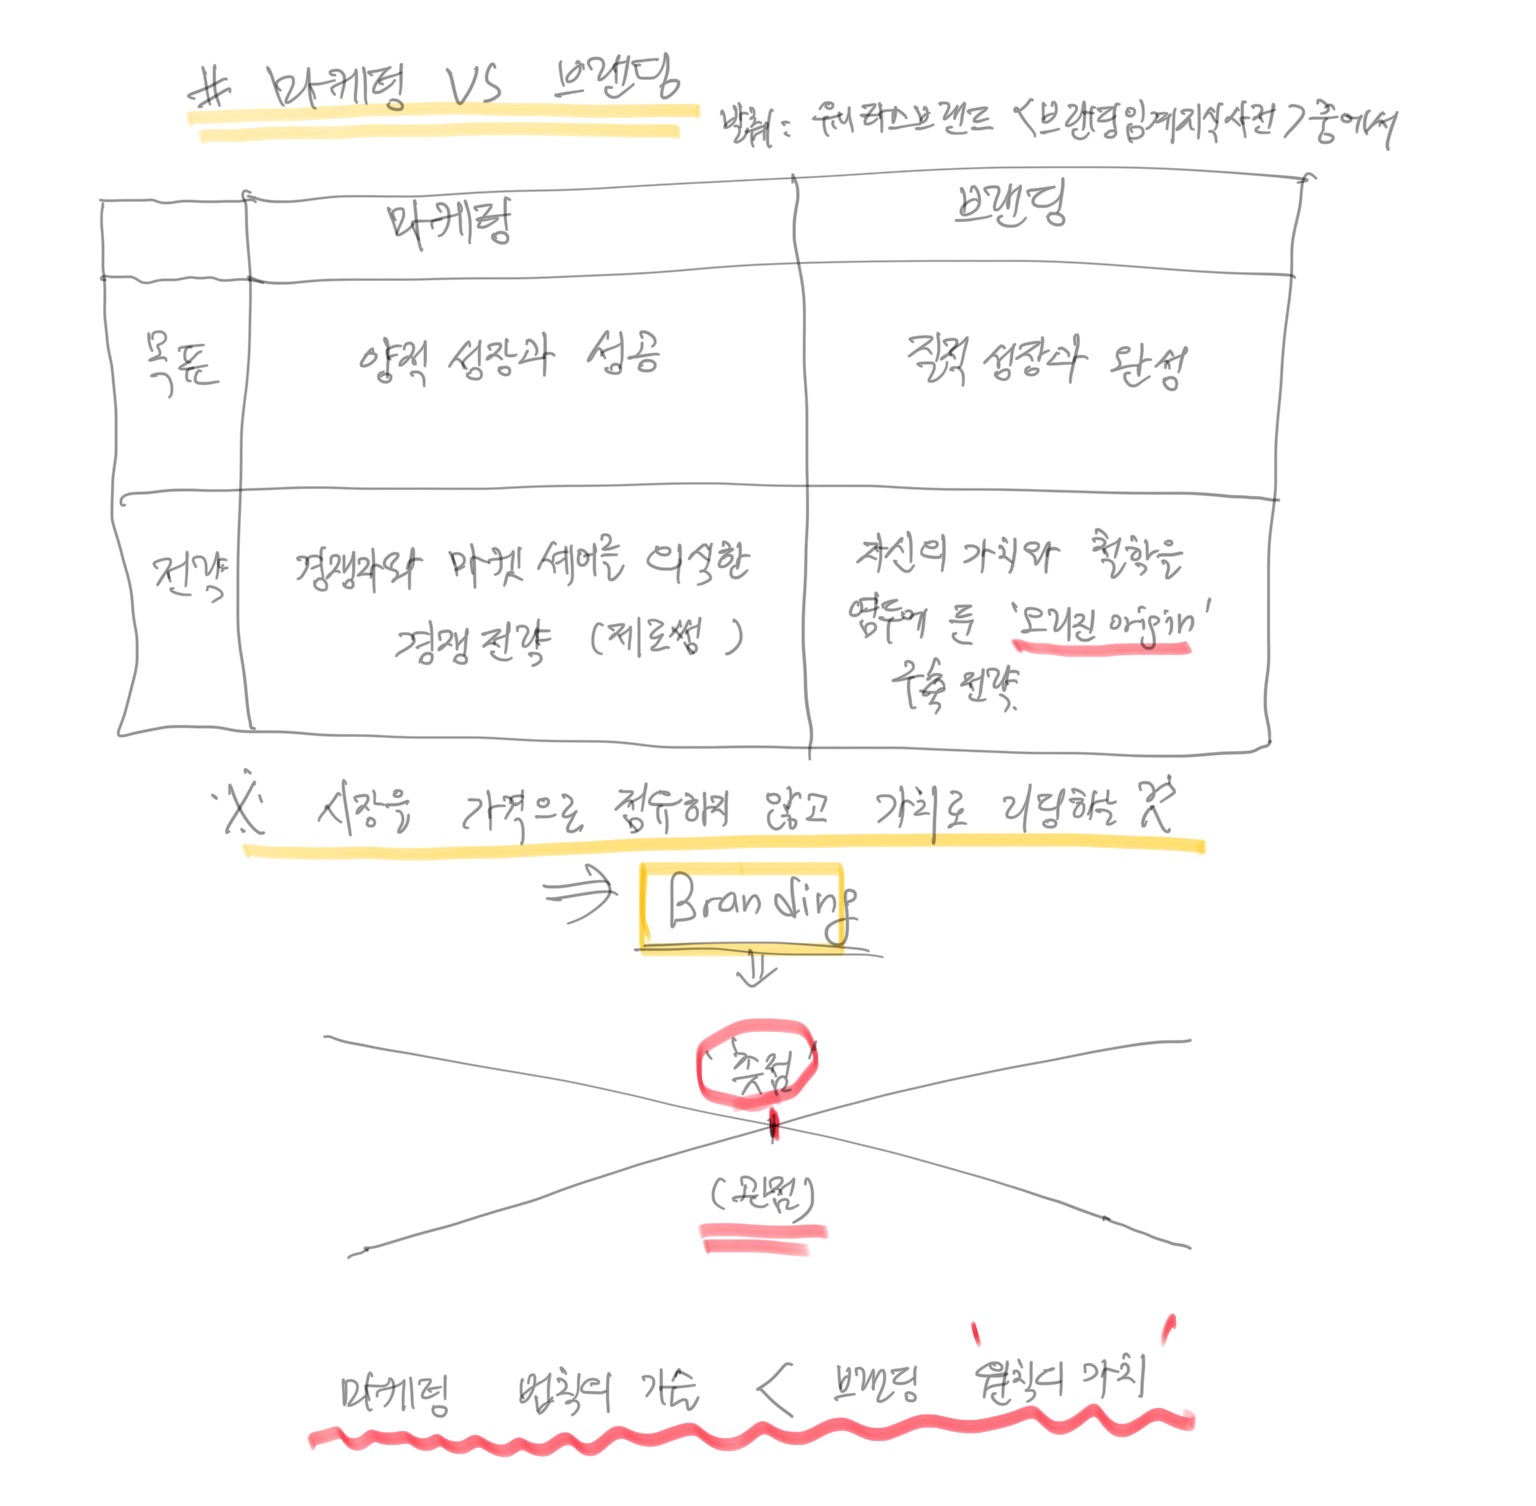 # 마케팅 VS 브랜딩
발췌: 유니타스브랜드 <브랜딩임계지식사전>중에서
마케팅
브랜딩
목표
양적 성장과 성공
질적 성장과 완성
전략
경쟁자와 마켓 셰어를 의식한
경쟁전략 (제로썸)
자신의 가치와 철학을
염두에 둔 '오리진 origin'
구축 전략
※ 시장을 가격으로 점유하지 않고 가치로 리딩하는 것
⇒ Branding
⇓
'축점'
(관점)
마케팅 법칙의 기술 < 브랜딩 '원칙의 가치'